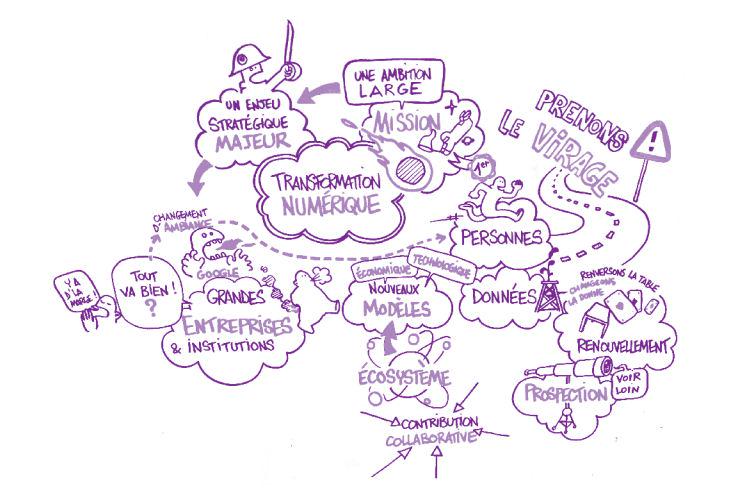 UNE AMBITION
LARGE
MISSION
UN ENJEU
STRATÉGIQUE
MAJEUR
TRANSFORMATION
NUMÉRIQUE
PRENONS
LE VIRAGE
!
1er
PERSONNES
CHANGEMENT
D'AMBIANCE
GOOGLE
TOUT
VA BIEN !
?
Y A
D'LA
MARGE !
GRANDES
ENTREPRISES
& INSTITUTIONS
ÉCONOMIQUE
TECHNOLOGIQUE
NOUVEAUX
MODÈLES
DONNÉES
RENVERSONS LA TABLE
CHANGEONS
LA DONNE
RENOUVELLEMENT
PROSPECTION
VOIR
LOIN
ÉCOSYSTEME
CONTRIBUTION
COLLABORATIVE